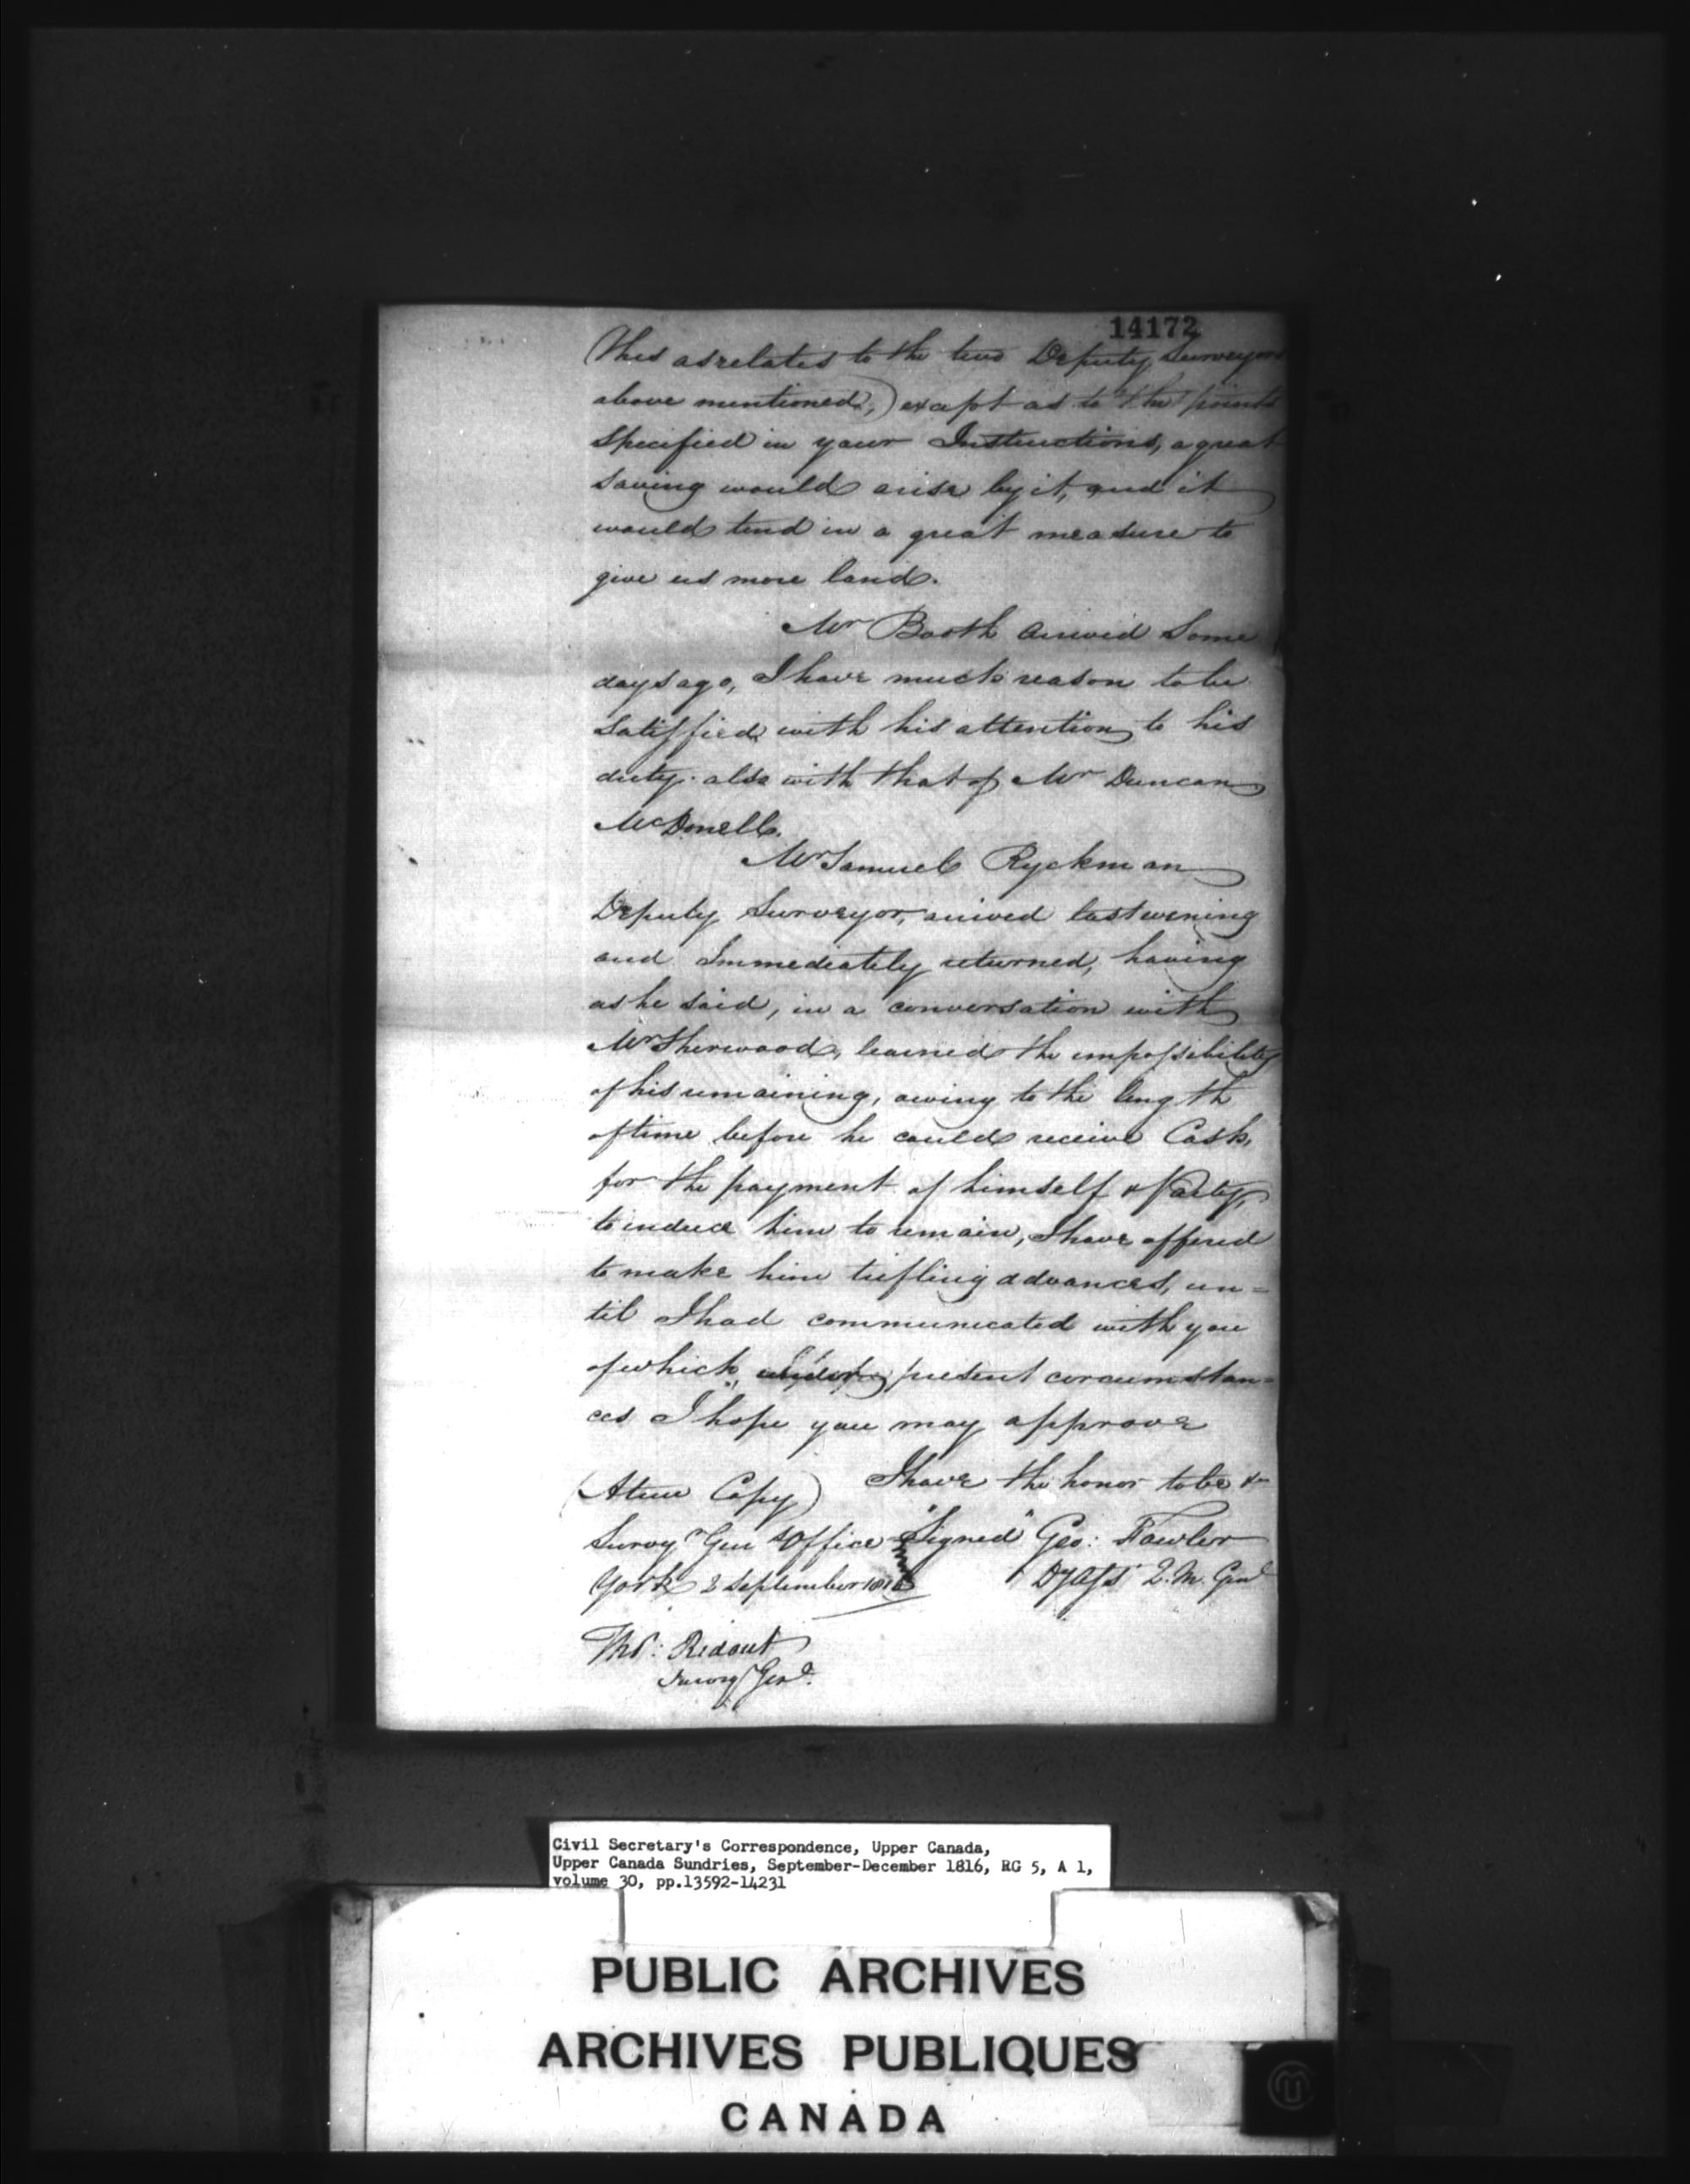 14172
(this as relates to the two Deputy Surveyors
above mentioned,) except as to the points
specified in your Instructions, a great
saving would arise by it, and it
would tend in a great measure to
give us more land.
Mr Booth arrived some
days ago, I have much reason to be
satisfied with his attention to his
duty. also with that of Mr Duncan
McDonell.
Mr Samuel Ryckman
Deputy Surveyor, arrived last evening
and Immediately returned, having
as he said, in a conversation with
Mr Sherwood, learned the impossibility
of his remaining, owing to the length
of time before he could receive Cash,
for the payment of himself & Party,
to induce him to remain, I have offered
to make him trifling advances, un=
til I had communicated with you
of which, under present circumstan=
ces I hope you may approve
I have the honor to be &c
(A true Copy)
Survy Genls Office "Signed" Geo: Fowler
York 2 September 1816 Dy Asst Q. M. Genl
Thos: Ridout
Survy Genl.
Civil Secretary's Correspondence, Upper Canada,
Upper Canada Sundries, September-December 1816, RG 5, A 1,
volume 30, pp.13592-14231
PUBLIC ARCHIVES
ARCHIVES PUBLIQUES
CANADA